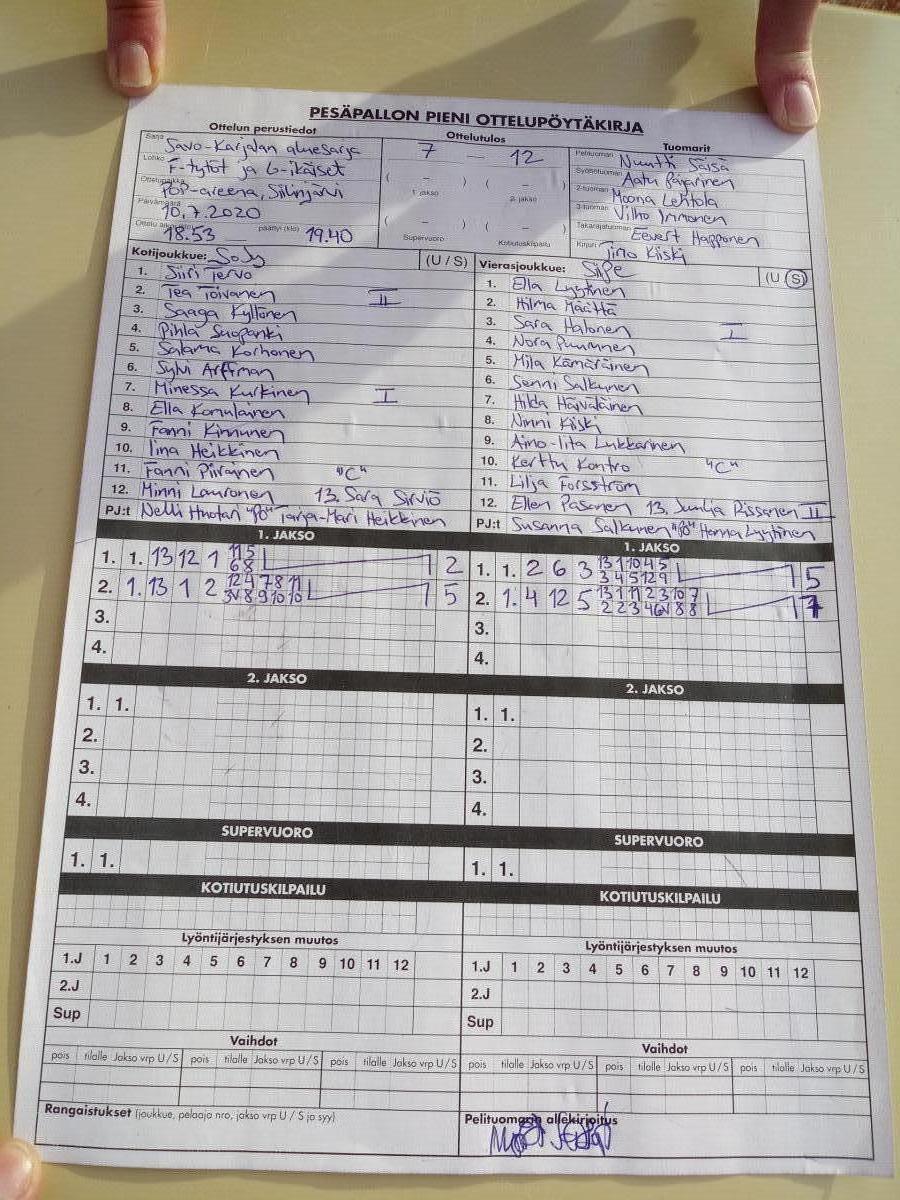 PESÄPALLON PIENI OTTELUPÖYTÄKIRJA
Ottelun perustiedot
Ottelutulos
Tuomarit
Sarja Savo-Karjalan aluesarja
Lohko F-tytöt ja 6-ikäiset
Ottelupaikka POP-areena, Siilinjärvi
Päivämäärä 10.7.2020
Ottelu alkoi 18.53 päättyi (klo) 19.40
7 — 12
( – ) ( – )
1. jakso 2. jakso
( – ) ( – )
Supervuoro Kotiutuskilpailu
Pelituomari Nuutti Säisä
Syöttötuomari Aatu Pajarinen
2-tuomari Moona Lehtola
3-tuomari Vilho Immonen
Takarajatuomari Eevert Happonen
Kirjuri Timo Kiiski
Kotijoukkue: SoJy (U / S)
1. Siiri Tervo
2. Tea Toivanen II
3. Saaga Kyllönen
4. Pihla Suopanki
5. Salama Korhonen
6. Sylvi Arffman
7. Minessa Kurkinen I
8. Ella Konulainen
9. Fanni Kinnunen
10. Iina Heikkinen
11. Fanni Piirainen "C"
12. Minni Lauronen 13. Sara Sirviö
PJ:t Nelli Huotari "PO" Tarja-Mari Heikkinen
Vierasjoukkue: SiiPe (U / S)
1. Ella Lyytinen
2. Hilma Määttä
3. Sara Halonen I
4. Nora Puumnen
5. Mila Kämäräinen
6. Senni Salkunen
7. Hilda Häiväläinen
8. Ninni Kiiski
9. Aino-Iita Lukkarinen
10. Kerttu Kontro "C"
11. Lilja Forsström
12. Ellen Pasanen 13. Juulia Rissanen II
PJ:t Susanna Salkunen "PO" Hanna Lyytinen
1. JAKSO
1. 1. 13 12 1 11 5 1 2
6 8
2. 1. 13 1 2 12 4 7 8 11 1 5
3V 8 9 10 10
3.
4.
1. JAKSO
1. 1. 2 6 3 13 1 10 4 5 1 5
3 4 5 12 9
2. 1. 4 12 5 13 1 11 2 3 10 7 1 7
2 2 3 4 6V 8 8
3.
4.
2. JAKSO
1. 1.
2.
3.
4.
2. JAKSO
1. 1.
2.
3.
4.
SUPERVUORO
1. 1.
SUPERVUORO
1. 1.
KOTIUTUSKILPAILU
KOTIUTUSKILPAILU
Lyöntijärjestyksen muutos
1.J 1 2 3 4 5 6 7 8 9 10 11 12
2.J
Sup
Lyöntijärjestyksen muutos
1.J 1 2 3 4 5 6 7 8 9 10 11 12
2.J
Sup
Vaihdot
pois tilalle Jakso vrp U / S pois tilalle Jakso vrp U / S pois tilalle Jakso vrp U / S
Vaihdot
pois tilalle Jakso vrp U / S pois tilalle Jakso vrp U / S pois tilalle Jakso vrp U / S
Rangaistukset (joukkue, pelaaja nro, jakso vrp U / S ja syy)
Pelituomarin allekirjoitus